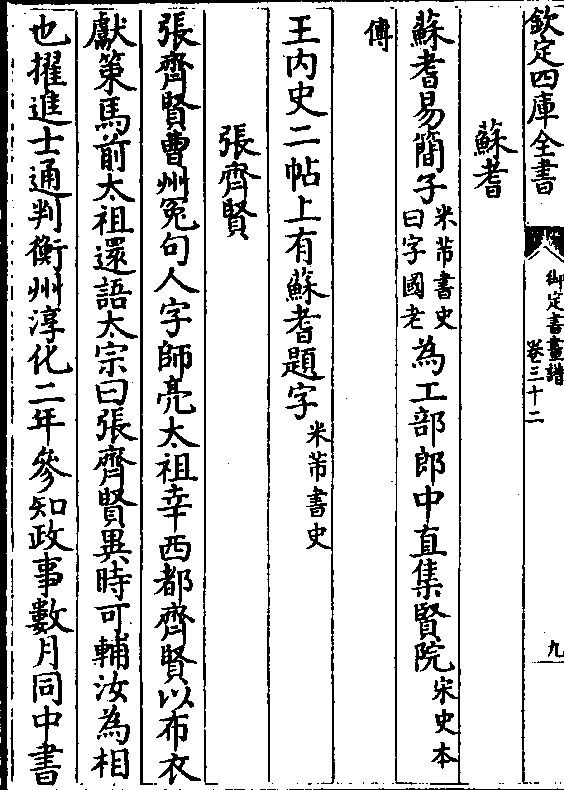 欽定四庫全書
御定書畫譜
卷三十二
九
蘇耆
蘇耆易簡子米芾書史曰字國老為工部郎中直集賢院宋史本
傳
王内史二帖上有蘇耆題字米芾書史
張齊賢
張齊賢曹州冤句人字師亮太祖幸西都齊賢以布衣
獻策馬前太祖還語太宗曰張齊賢異時可輔汝為相
也擢進士通判衡州淳化二年參知政事數月同中書